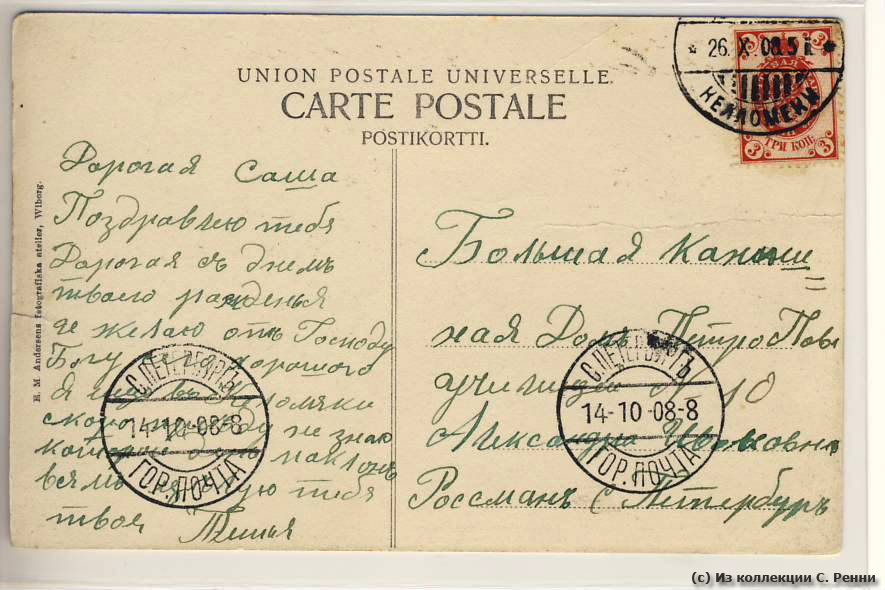 UNION POSTALE UNIVERSELLE.
CARTE POSTALE
POSTIKORTTI.
26. X. 08. 5 i.
КЕЛЛОМЕКИ
3 3
3 3
ТРИ КОП.
H. M. Andersens fotografiska atelier, Wiborg.
Дорогая Саша
Поздравлею тебя
Дорогая съ днемъ
твоего рожденья
желаю отъ Господу
Богу хорошого
Я
скоро не знаю
всямъ тебя
твоя
С.ПЕТЕРБУРГЪ
14-10-08-8
ГОР.ПОЧТА
Большая Конюше
ная Домъ Петро Пов
училище № 10
Александра Ивановна
Россманъ С Петербуръ
С.ПЕТЕРБУРГЪ
14-10-08-8
ГОР.ПОЧТА
(c) Из коллекции С. Ренни